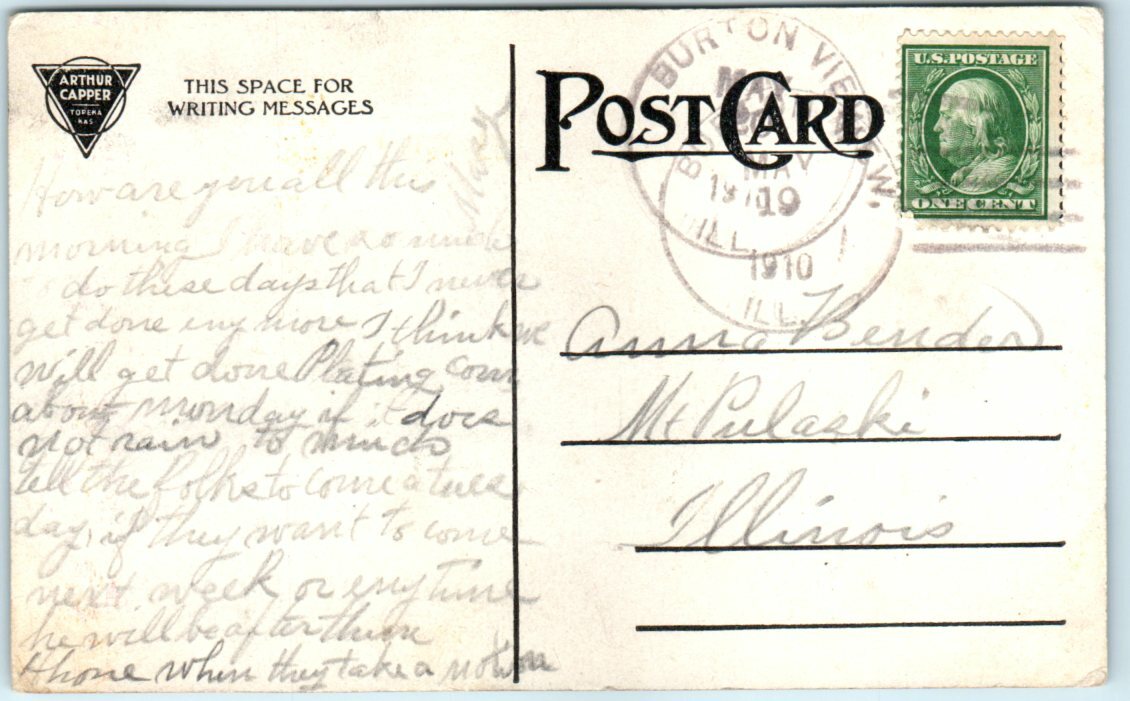 ARTHUR
CAPPER
TOPEKA
KAS
THIS SPACE FOR
WRITING MESSAGES
How are you all this
morning I have so much
to do these days that I never
get done eny more I think we
will get done Plating corn
about monday if it does
not rain to much
tell the folks to come a tues
day, if they want to come
next week or eny time
he will be after them
Phone when they take a notion
POST CARD
BURTON VIEW.
MAY
19
1910
ILL.
BU
MAY
19
1910
ILL.
U.S. POSTAGE
ONE CENT
Anna Bender
Mt Pulaski
Illinois